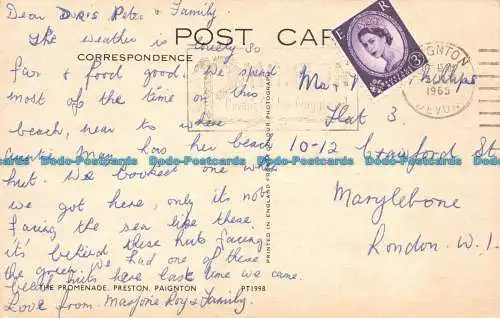 Dear Doris Peter & Family.
The weather is lovely so
far & food good. We spend
most of the time on this
beach, near to where
Man has her beach
hut. We booked one when
we got here, only it's not
facing the sea like these
it's behind these huts facing
the green. We had one of these
beach huts here last time we came.
Love from. Marjorie Roy & Family.
POST CARD
CORRESPONDENCE
E R
3D
PAIGNTON
1965
DEVON
Flat 3.
10-12 Crawford St
Marylebone
London. W.1.
PRINTED IN ENGLAND FROM A COLOUR PHOTOGRAPH
THE PROMENADE, PRESTON, PAIGNTON PT1998
Dodo-Postcards Dodo-Postcards Dodo-Postcards Dodo-Postcards
Dodo-Postcards Dodo-Postcards Dodo-Postcards Dodo-Postcards